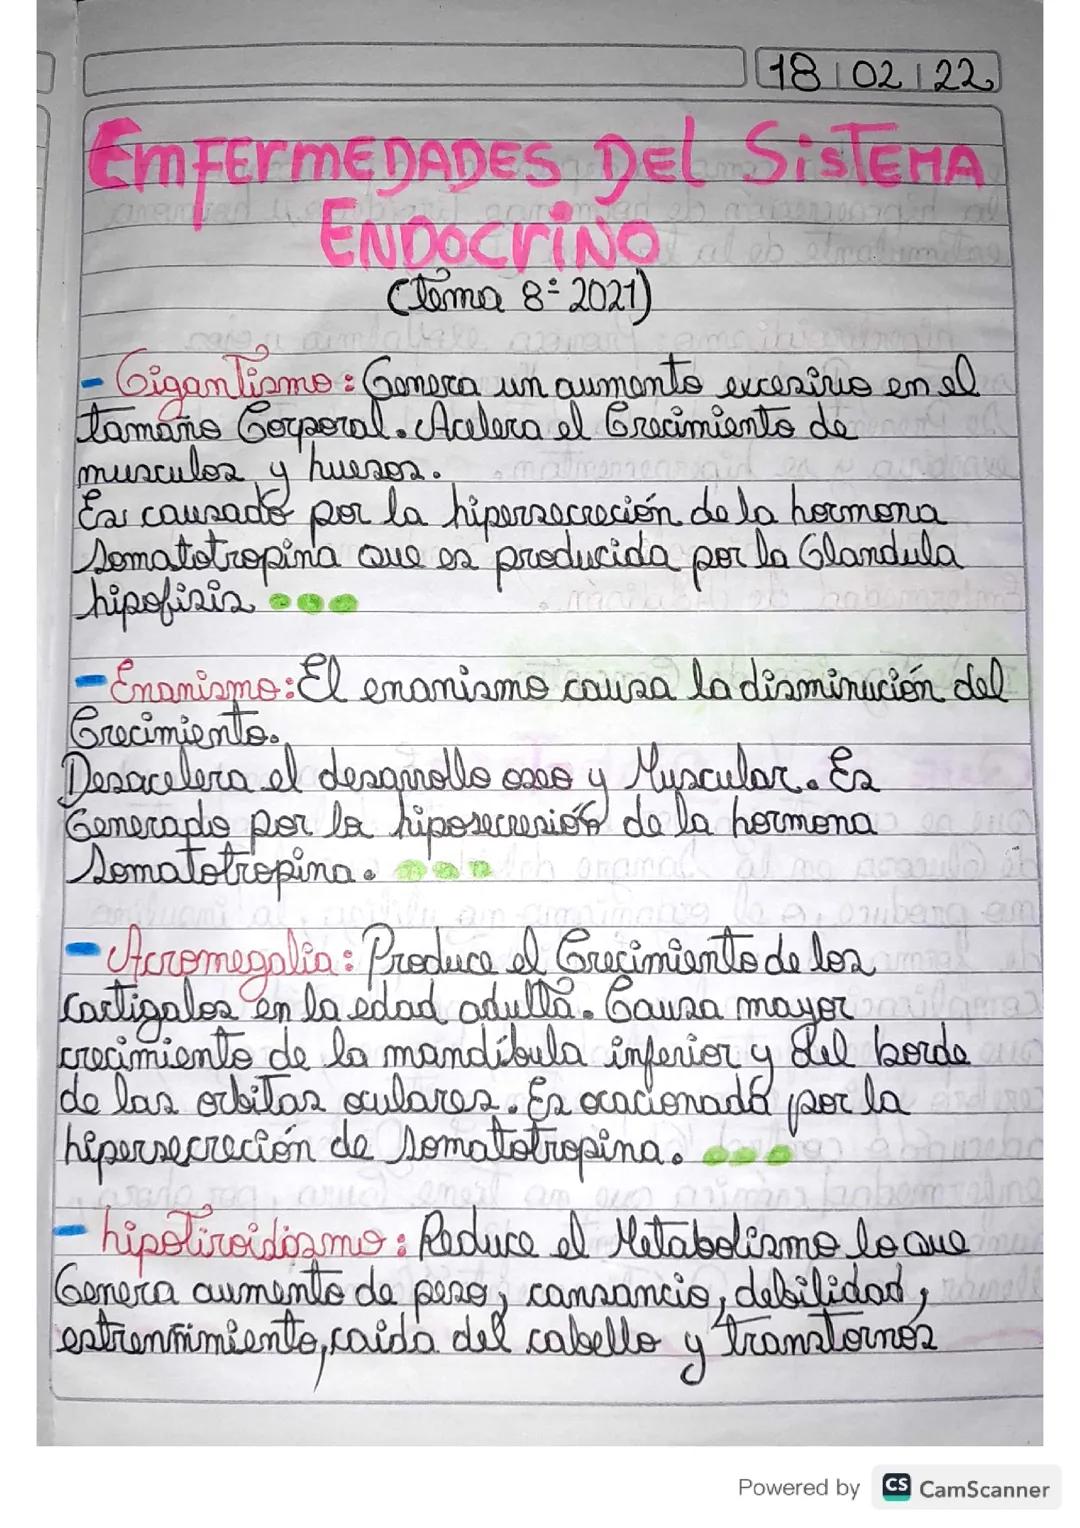 18 02 22
EnFErmEDADES DEl SiSTEMA
ENDOCriNO
(tema 8- 2021)
- Gigantismo: Genera un aumento excesivo en el
tamaño Corporal. Acelera el Crecimiento de
musculos y huesos.
Es causado por la hipersecreción de la hormona
Somatotropina que es producida por la Glandula
hipofisis
- Enanismo: El enanismo causa la disminución del
Crecimiento.
Desacelera el desarrollo oseo y Muscular. Es
Generado por la hiposecresión de la hormona
Somatotropina.
- Acromegalia: Produce el Crecimiento de los
cartigalos en la edad adulta. Causa mayor
crecimiento de la mandíbula inferior y del borde
de las orbitas oculares. Es ocacionada por la
hipersecreción de somatotropina.
- hipotiroidismo: Reduce el Metabolismo lo que
Genera aumento de peso, cansancio, debilidad,
estrenñimiento, caida del cabello y transtornos
Powered by CS CamScanner